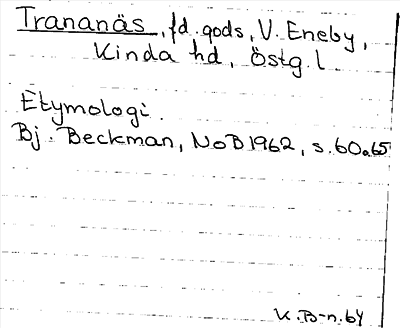 Trananäs, fd. gods, V. Eneby,
Kinda hd, Östg. l.
Etymologi.
Bj. Beckman, NoB 1962, s. 60o.65
K. B-n. 64